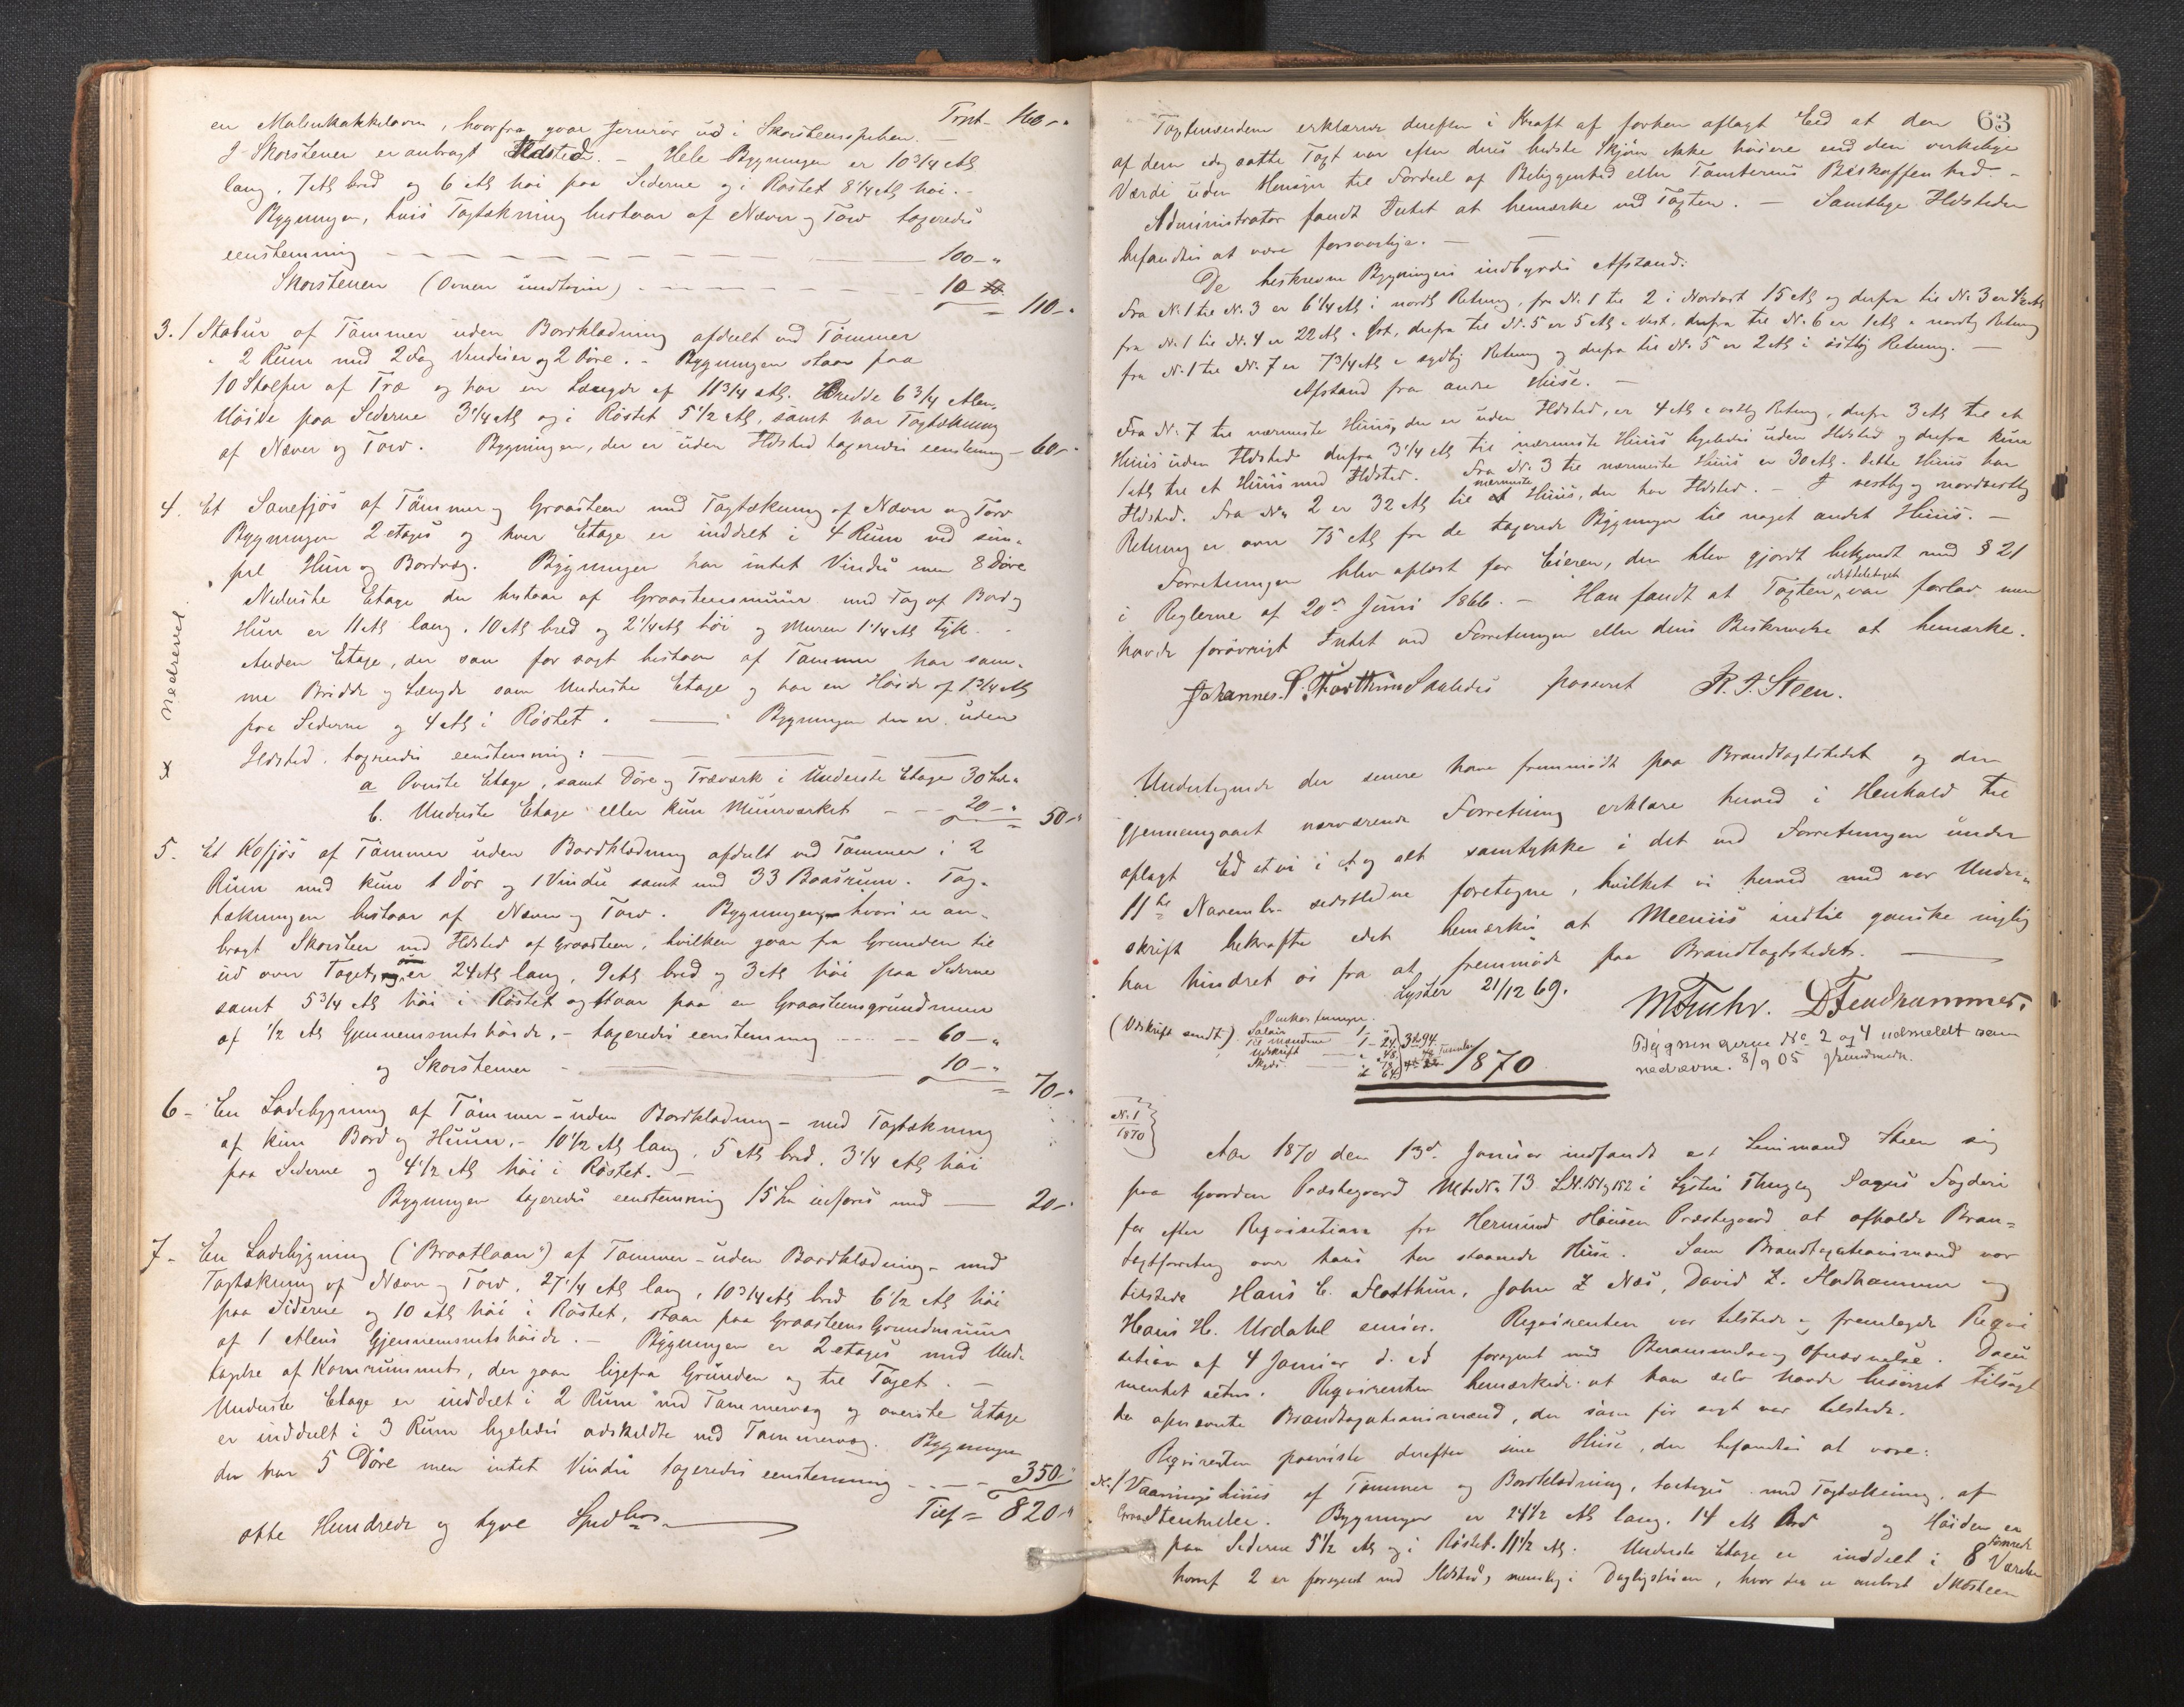 Trnt. 160 - "
en Malenkakkelovn, hvorfra gaar Jernrør ud i Skorsteenspiben.
I Skorstenen er anbragt Ildsted. - Hele Bygningen er 10 3/4 Al
lang, 7 Al bred og 6 Al høi paa Siderne og i Røstet 8 1/4 Al høi. -
Bygningen, hvis Tagtækning bestaar af Næver og Torv taxeredes
eenstemmig - 100 - "
Skorstenen (Ovnen undtagen) - 10 -
110 - "
3. 1 Stabur af Tømmer uden Bordklædning afdeelt ved Tømmer
i 2 Rum med 2 Fag Vinduer og 2 Døre. - Bygningen staar paa
10 Stolper af Træ og har en Længde af 11 3/4 Al. Bredde 6 3/4 Alen,
Høide paa Siderne 3 1/4 Al og i Røstet 5 1/2 Al, samt har Tagtækning
af Næver og Torv. Bygningen, der er uden Ildsted taxeredes eenstemmig - 60 - "
4. Et Sauefjøs af Tømmer og Graasteen med Tagtækning af Næver og Torv
Bygningen 2 etages og hver Etage er inddelt i 4 Rum ved sim-
pel Hun og Bordvæg. Bygningen har intet Vindu men 8 Døre
Nederste Etage der bestaar af Graasteensmuur med Tag af Bord og
Hun er 11 Al lang, 10 Al bred og 2 1/4 Al høi og Muren 1 1/4 Al tyk. -
Anden Etage, der som før sagt bestaar af Tømmer har sam-
me Bredde og Længde som Underste Etage og har en Høide af 1 3/4 Al
paa Siderne og 4 Al i Røstet. - Bygningen der er uden
Ildsted, taxeredes eenstemmig: -
a Øverste Etage, samt Døre og Træværk i Underste Etage 30
b. Underste Etage eller kun Muurværket - 20 - "
50 - "
x nedrevet
5. Et Kofjøs af Tømmer uden Bordklædning afdeelt ved Tømmer i 2
Rum med kun 1 Dør og 1 Vindu samt med 33 Baasrum. Tag-
tækningen bestaar af Næver og Torv. Bygningen, hvori er an-
bragt Skorsten med Ildsted af Graasteen, hvilken gaar fra Grunden til
ud over Taget, er 24 Al lang, 9 Al bred og 3 Al høi paa Siderne
samt 5 3/4 Al høi i Røstet og staar paa en Graasteensgrundmuur
af 1/2 Al Gjennemsnitshøide, - taxeredes eenstemmig - 60 - "
og Skorstenen - 10 - "
70 - "
6 - En Ladebygning af Tømmer - uden Bordklædning - med Tagtækning
af kun Bord og Huun, - 10 1/2 Al lang, 5 Al bred, 3 1/4 Al høi
paa Siderne og 4 1/2 Al høi i Røstet. -
Bygningen taxeredes eenstemmig 15 indføres med - 20 - "
7 - En Ladebygning ("Braatlaan") af Tømmer - uden Bordklædning - med
Tagtækning af Næver og Torv, 27 1/4 Al lang, 10 3/4 Al bred 6 1/2 Al høi
paa Siderne og 10 Al høi i Røstet, staar paa Graasteens Grundmuur
af 1 Alens Gjennemsnitshøide. - Bygningen er 2 etages med Und-
tagelse af Kornrummet, der gaar ligefra Grunden og til Taget. -
Underste Etage er inddelt i 2 Rum ved Tømmervæg og øverste Etage
er inddeelt i 3 Rum ligeledes adskildte ved Tømmervæg. Bygningen
der har 5 Døre men intet Vindu taxeredes eenstemmig - 350 "
Tils = 820 - "
otte Hundrede og tyve Spdlr
63
Taxtmændene erklærede derefter i Kraft af forhen aflagt Eed at den
af dem idag satte Taxt var efter deres bedste Skjøn ikke høiere end den virkelige
Værdi uden Hensyn til Fordeel af Beliggenhed eller Tomternes Beskaffenhed. -
Administrator fandt Intet at bemærke ved Taxten. - Samtlige Ildsteder
befandtes at være forsvarlige. -
De beskrevne Bygningers indbyrdes Afstand:
Fra N. 1 til N. 3 er 6 1/4 Al i nordl Retning, fra N. 1 til 2 i Nordost 15 Al og derfra til N. 3 er
fra N. 1 til N. 4 er 22 Al i Øst, derfra til N. 5 er 5 Al i Vest, derfra til N. 6 er 1 Al i nordlig Retning
fra N. 1 til N. 7 er 7 3/4 Al i sydlig Retning og derfra til N. 5 er 2 Al i østlig Retning. -
Afstand fra andre Huse. -
Fra N. 7 til nærmeste Huus, der er uden Ildsted, er 4 Al i østlig Retning, derfra 3 Al til et
Huus uden Ildsted derfra 3 1/4 Al til nærmeste Huus ligeledes uden Ildsted og derfra kun
1 Al til et Huus med Ildsted. Fra N. 3 til nærmeste Huus er 30 Al. Dette Huus har
Ildsted. Fra N. 2 er 32 Al til nærmeste Huus, der har Ildsted. - I vestlig og nordvestlig
Retning er over 75 Al fra de taxerede Bygninger til noget andet Huus. -
Forretningen blev oplæst for Eieren, der blev gjordt bekjendt med § 21
i Reglerne af 20de Juni 1866. - Han fandt at Taxten var for lav men
havde forøvrigt Intet ved Forretningen eller dens Beskrivelse at bemærke.
Johannes S. Skaledes passeret R. T. Steen.
Undertegnede der senere have fremmødt paa Brandtaxtstedet og den
gjennemgaaet nærværende Forretning erklære herved i Henhold til
aflagt Ed at vi i et og alt samtykke i det ved Forretningen under
11te Novembr. sidstledne foretagne, hvilket vi herved med vor Under-
skrift bekræfte idet bemærkes at Meeniis indtil ganske nylig
har hindret os fra at fremmøde paa Brandtaxtstedet. -
Lyster 21/12 69.
M Fuhr. D Fladhammer.
(Udskrift sendt)
Omkostninger.
Salair 1 -
til mændene 1 - 24
Udskrift - " 48
Skyds
Bygningerne No 2 og 4 udmeldt som
nedrevne. 8/9 05
1870
N. 1
1870
Aar 1870 den 13de Januar indfandt Lensmand Steen sig
paa Gaarden Præstegaard Mt.N. 73 L.N. 151 og 152 i Lysters Thinglag Sogns Fogderi
for efter Reqvisition fra Hermund Hansen Præstegaard at afholde Bran-
taxtforretning over hans her staaende Huse. Som Brandtaxationsmænd var
tilstede Hans E. Flotthun, John Z Næs, David Z. Fladhammer og
Hans H. Urdahl senior. Reqvirenten var tilstede og fremlagde Reqvi
sition af 4 Januar d. A forsynet med Berammelse og Opnævnelse. Docu
mentet acten. Reqvirenten bemærkede at han selv havde besørget tilsagt
de opnævnte Brandtaxationsmænd, der som før sagt var tilstede.
Reqvirenten paaviste derefter sine Huse, der befandtes at være:
N. 1 Vaaningshuus af Tømmer og Bordklædning, toetages med Tagtækning af
Steenheller. Bygningen er 24 1/2 Al lang, 14 Al Bred og Høiden er
paa Siderne 5 1/2 Al og i Røstet 11 1/2 Al. Underste Etage er inddelt i 8 Værelser
hvoraf 2 er forsynet med Ildsted, nemlig i Dagligstuen, hvor der er anbragt Skorsteen